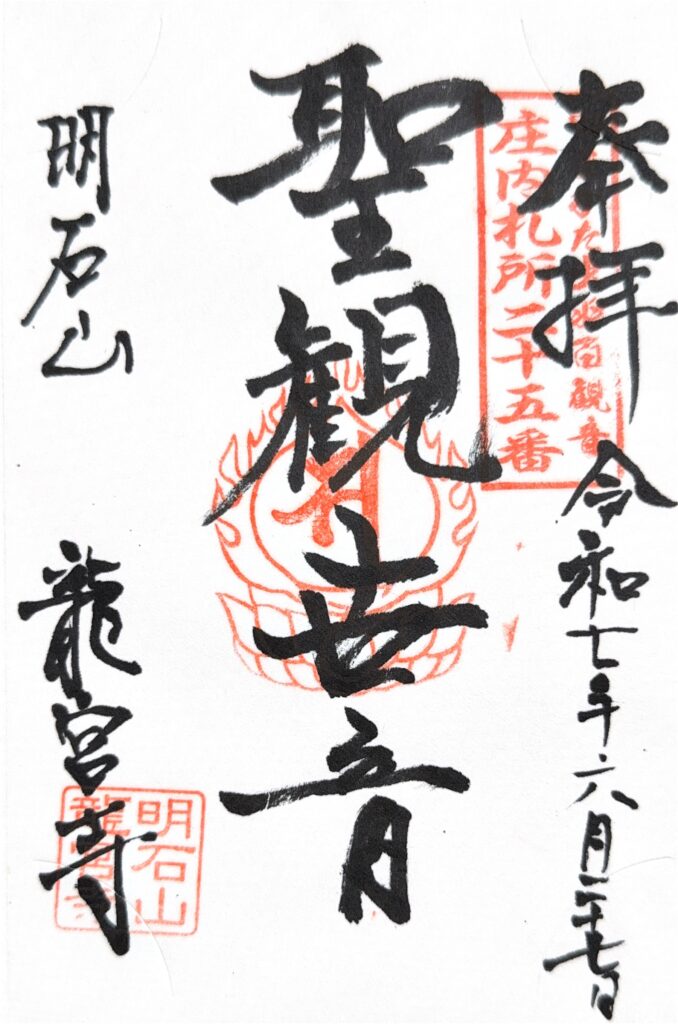 奉拝
令和七年六月二十七日
た出逢百観音
庄内札所二十五番
聖観世音
明石山
龍宮寺
明石山
龍宮寺